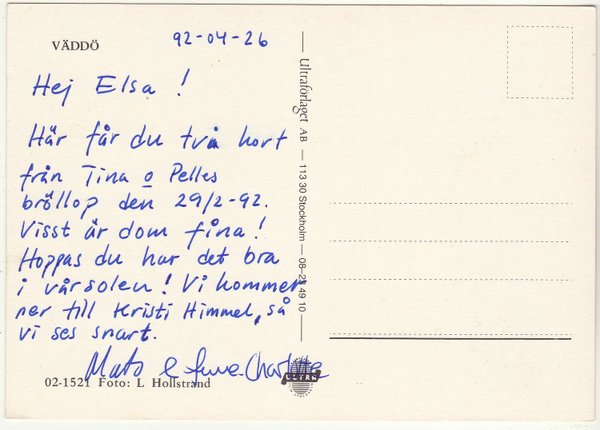 VÄDDÖ
92-04-26
Hej Elsa!
Här får du två kort
från Tina o Pelles
bröllop den 29/2-92.
Visst är dom fina!
Hoppas du har det bra
i vårsolen! Vi kommer
ner till Kristi Himmel, så
vi ses snart.
Mats & Anne-Charlotte
02-1521 Foto: L Hollstrand
Ultraförlaget AB — 113 30 Stockholm — 08-23 49 10